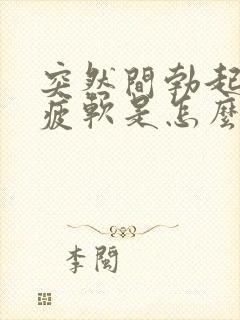 突然間勃起
疲軟是怎麼
李闖